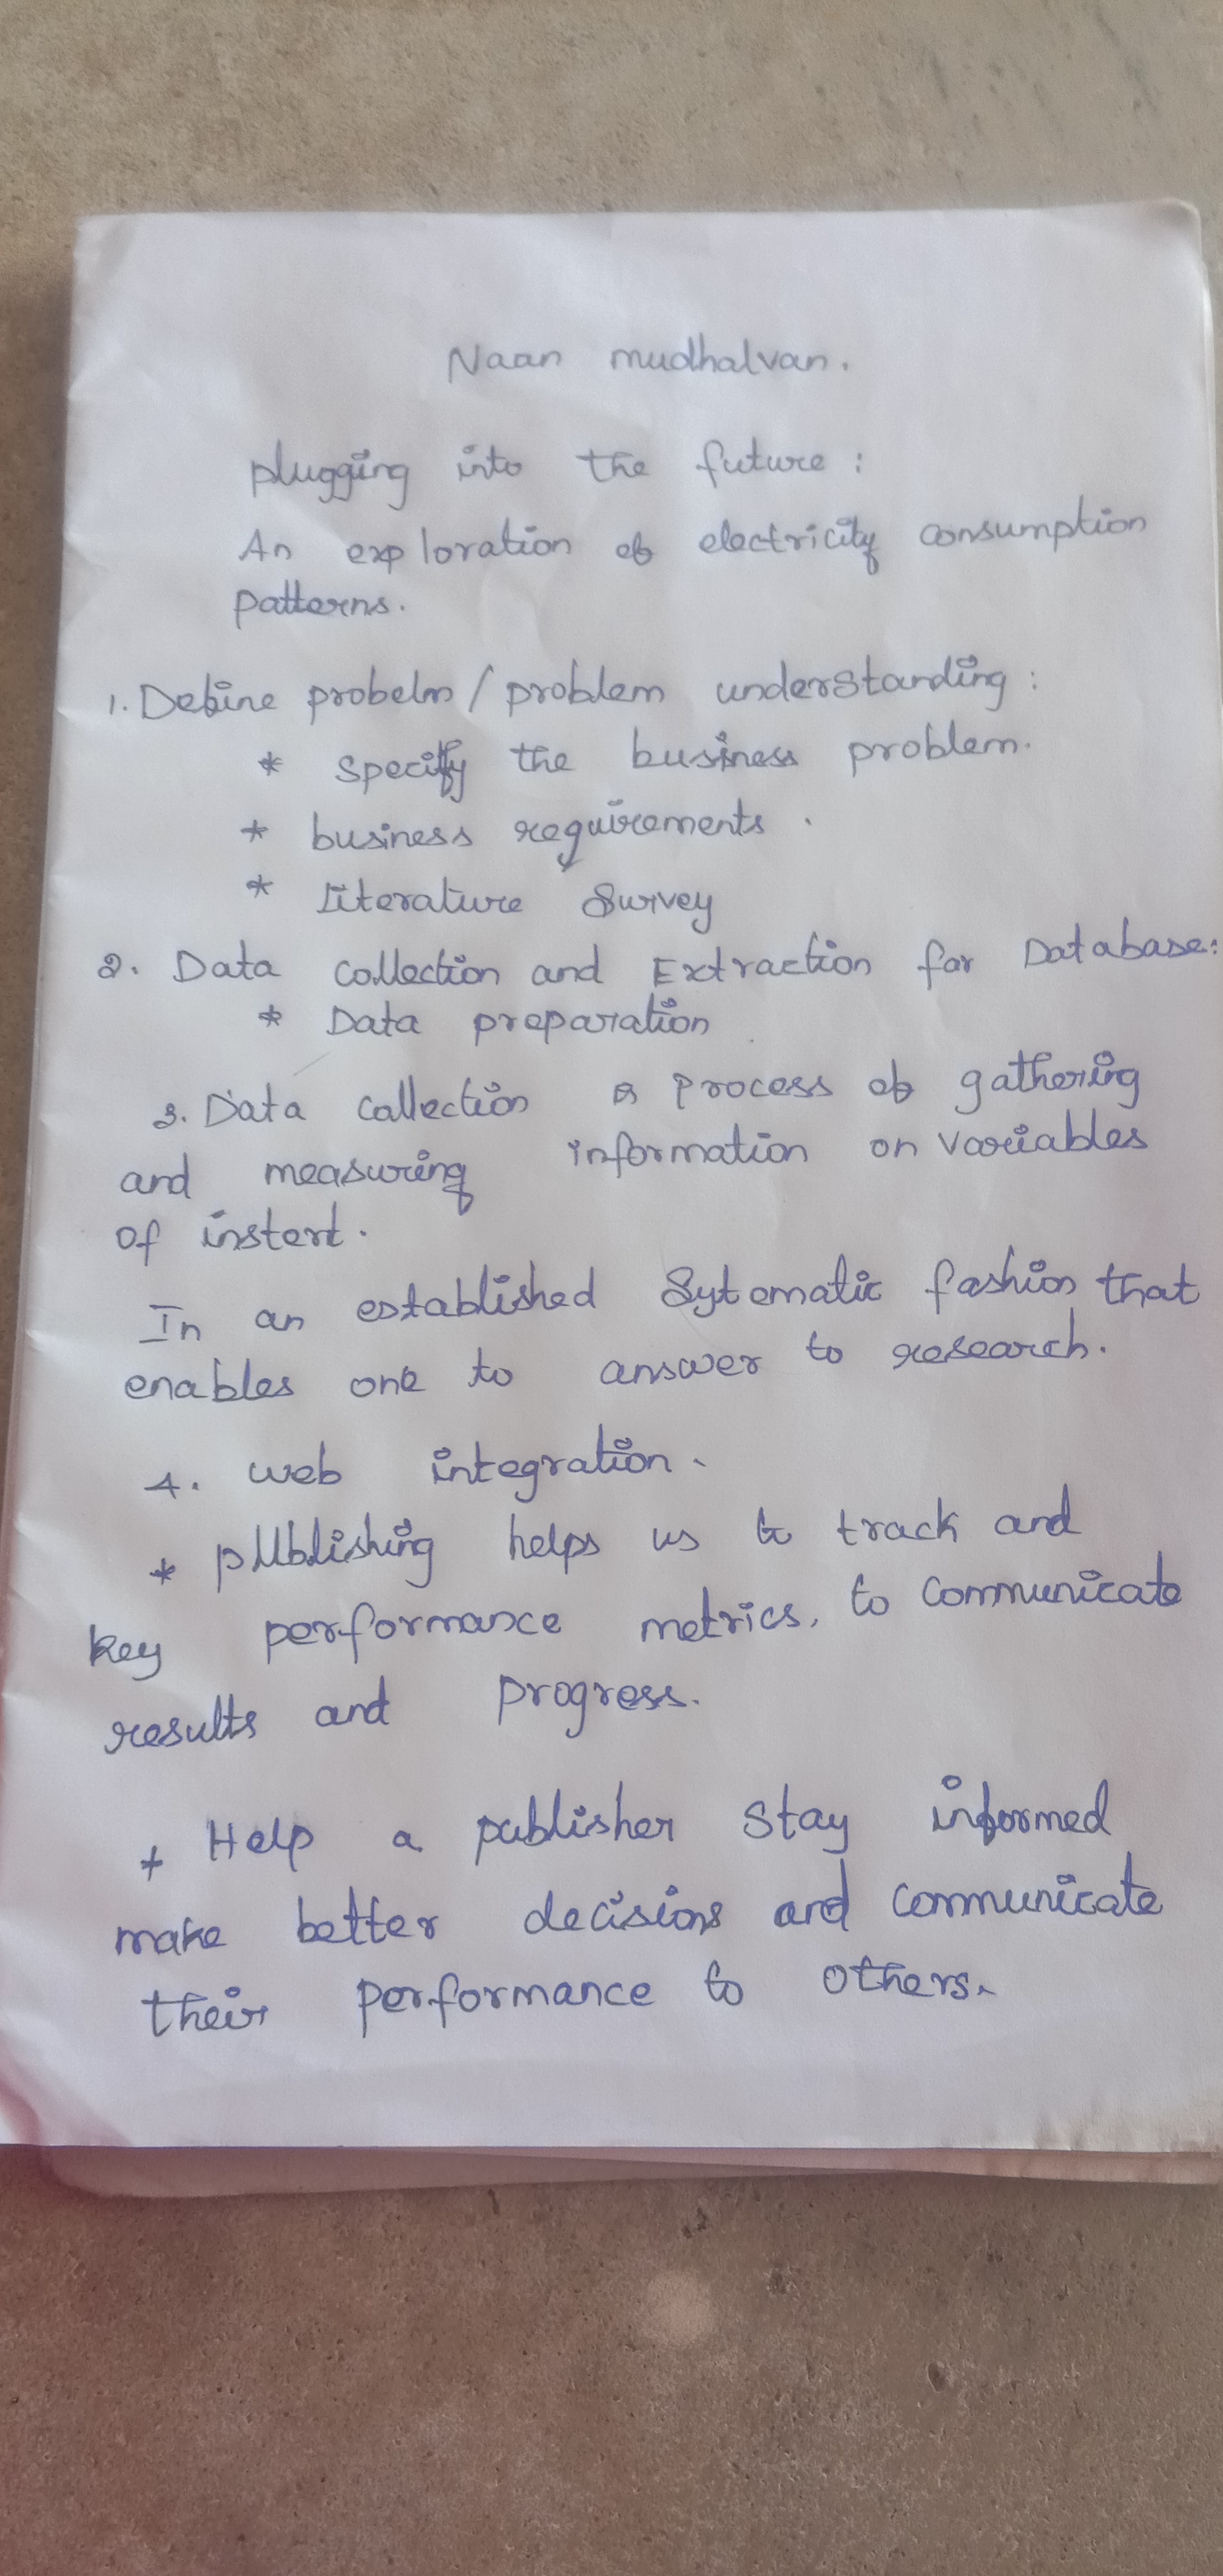 Naan mudhalvan.
plugging into the future :
An exploration of electricity consumption
patterns.
1. Define probelm / problem understanding :
* Specify the business problem.
* business requirements .
* Literature Survey
2. Data collection and Extraction for Database:
* Data preparation
3. Data collection is Process of gathering
and measuring information on variables
of instert.
In an established Sytematic fashion that
enables one to answer to research.
4. web integration.
* pUblishing helps us to track and
key performance metrics, to communicate
results and progress.
+ Help a publisher stay informed
make better decisions and communicate
their performance to others.